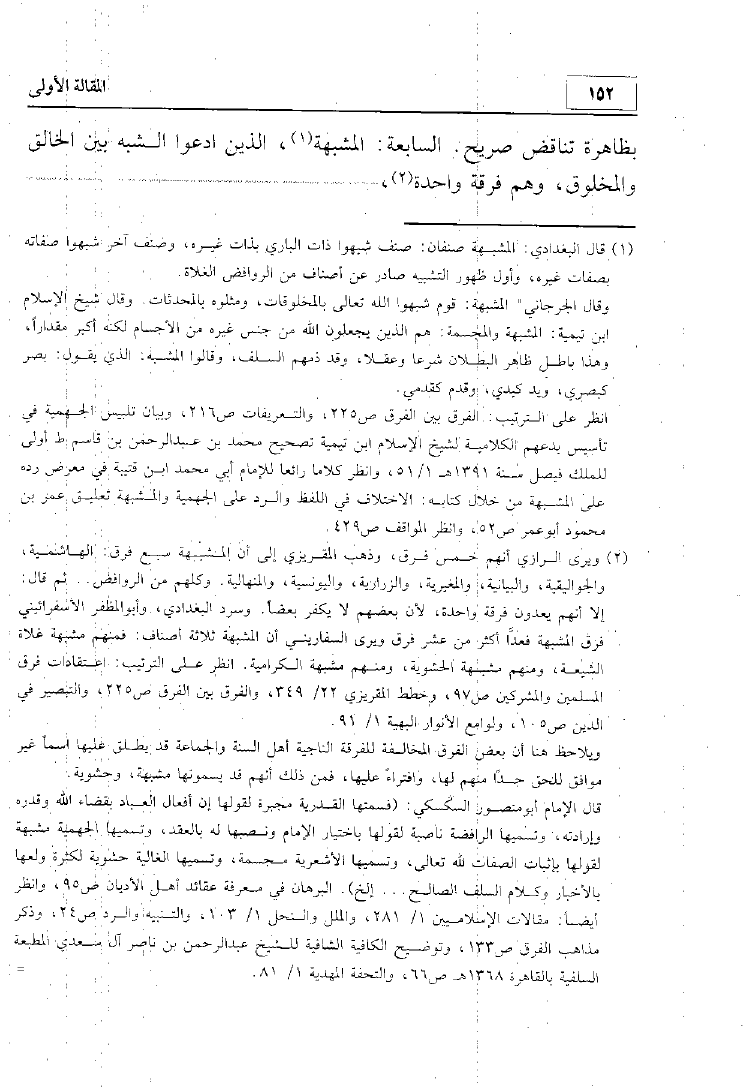 ١٥٢
المقالة الأولى
بظاهرة تناقض صريح. السابعة: المشبهة(١)، الذين ادعوا الشبه بين الخالق
والمخلوق، وهم فرقة واحدة(٢)،
(١) قال البغدادي: المشبهة صنفان: صنف شبهوا ذات الباري بذات غيره، وصنف آخر شبهوا صفاته
بصفات غيره، وأول ظهور التشبيه صادر عن أصناف من الروافض الغلاة.
وقال الجرجاني" المشبهة: قوم شبهوا الله تعالى بالمخلوقات، ومثلوه بالمحدثات. وقال شيخ الإسلام
ابن تيمية: المشبهة والمجسمة: هم الذين يجعلون الله من جنس غيره من الأجسام لكنه أكبر مقداراً،
وهذا باطل ظاهر البطلان شرعا وعقلا، وقد ذمهم السلف، وقالوا المشبة: الذي يقول: بصر
كبصري، ويد كيدي، وقدم كقدمي.
انظر على الترتيب: الفرق بين الفرق ص٢٢٥، والتعريفات ص٢١٦، وبيان تلبيس الجهمية في
تأسيس بدعهم الكلامية لشيخ الإسلام ابن تيمية تصحيح محمد بن عبدالرحمن بن قاسم ط أولى
للملك فيصل سنة ١٣٩١هـ ٥١/١، وانظر كلاما رائعا للإمام أبي محمد ابن قتيبة في معرض رده
على المشبهة من خلال كتابه: الاختلاف في اللفظ والرد على الجهمية والمشبهة تعليق عمر بن
محمود أبوعمر ص٥٢، وانظر المواقف ص٤٢٩.
(٢) ويرى الرازي أنهم خمس فرق، وذهب المقريزي إلى أن المشبهة سبع فرق: الهاشمية،
والجواليقية، والبيانية، والمغيرية، والزرارية، واليونسية، والمنهالية. وكلهم من الروافض.. ثم قال:
إلا أنهم يعدون فرقة واحدة، لأن بعضهم لا يكفر بعضاً. وسرد البغدادي، وأبوالمظفر الأسفرائيني
فرق المشبهة فعدَّا أكثر من عشر فرق ويرى السفاريني أن المشبهة ثلاثة أصناف: فمنهم مشبهة غلاة
الشيعة، ومنهم مشبهة الحشوية، ومنهم مشبهة الكرامية. انظر على الترتيب: اعتقادات فرق
المسلمين والمشركين ص٩٧، وخطط المقريزي ٢٢/ ٣٤٩، والفرق بين الفرق ص٢٢٥، والتبصير في
الدين ص١٠٥، ولوامع الأنوار البهية ١/ ٩١.
ويلاحظ هنا أن بعض الفرق المخالفة للفرقة الناجية أهل السنة والجماعة قد يطلق عليها اسماً غير
موافق للحق جدّا منهم لها، وافتراءً عليها، فمن ذلك أنهم قد يسمونها مشبهة، وحشوية.
قال الإمام أبومنصور السكسكي: (فسمتها القدرية مجبرة لقولها إن أفعال العباد بقضاء الله وقدره
وإرادته، وتسميها الرافضة ناصبة لقولها باختيار الإمام ونصبها له بالعقد، وتسميها الجهمية مشبهة
لقولها بإثبات الصفات لله تعالى، وتسميها الأشعرية مجسمة، وتسميها الغالية حشوية لكثرة ولعها
بالأخبار وكلام السلف الصالح... إلخ). البرهان في معرفة عقائد أهل الأديان ص٩٥، وانظر
أيضاً: مقالات الإسلاميين ١/ ٢٨١، والملل والنحل ١/ ١٠٣، والتنبيه والرد ص٢٤، وذكر
مذاهب الفرق ص١٣٣، وتوضيح الكافية الشافية للشيخ عبدالرحمن بن ناصر آل سعدي المطبعة
السلفية بالقاهرة ١٣٦٨هـ ص٦٦، والتحفة المهدية ١/ ٨١. =